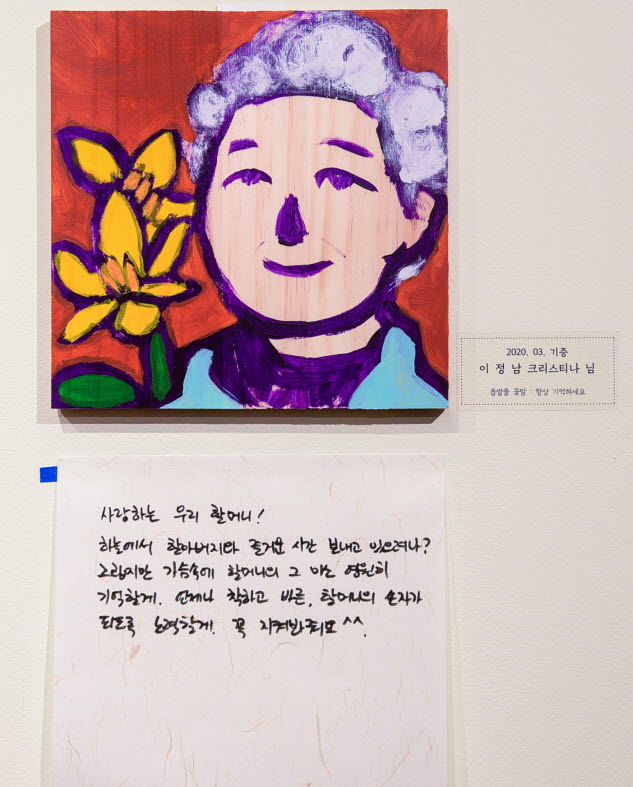 2020. 03. 기증
이 정 남 크리스티나 님
좁쌀풀 꽃말 : 항상 기억하세요
사랑하는 우리 할머니!
하늘에서 할아버지와 즐거운 시간 보내고 있으려나?
그립지만 가슴속에 할머니의 그 미소 영원히
기억할게. 언제나 착하고 바른, 할머니의 손자가
되도록 노력할게. 꼭 ^^.